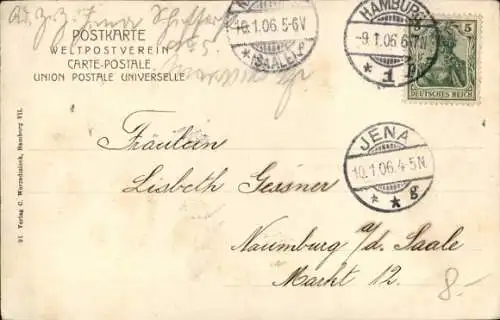 POSTKARTE
WELTPOSTVEREIN
CARTE-POSTALE
UNION POSTALE UNIVERSELLE
10.1.06.5-6V
(SAALE)
HAMBURG
-9.1.06.6-7N
* 1
5 5
DEUTSCHES REICH
JENA
10.1.06.4-5N.
* * g
Fräulein
Lisbeth Gessner
Naumburg a/d. Saale
Markt 12.
8.-
91 Verlag C. Worzedialeck, Hamburg VII.